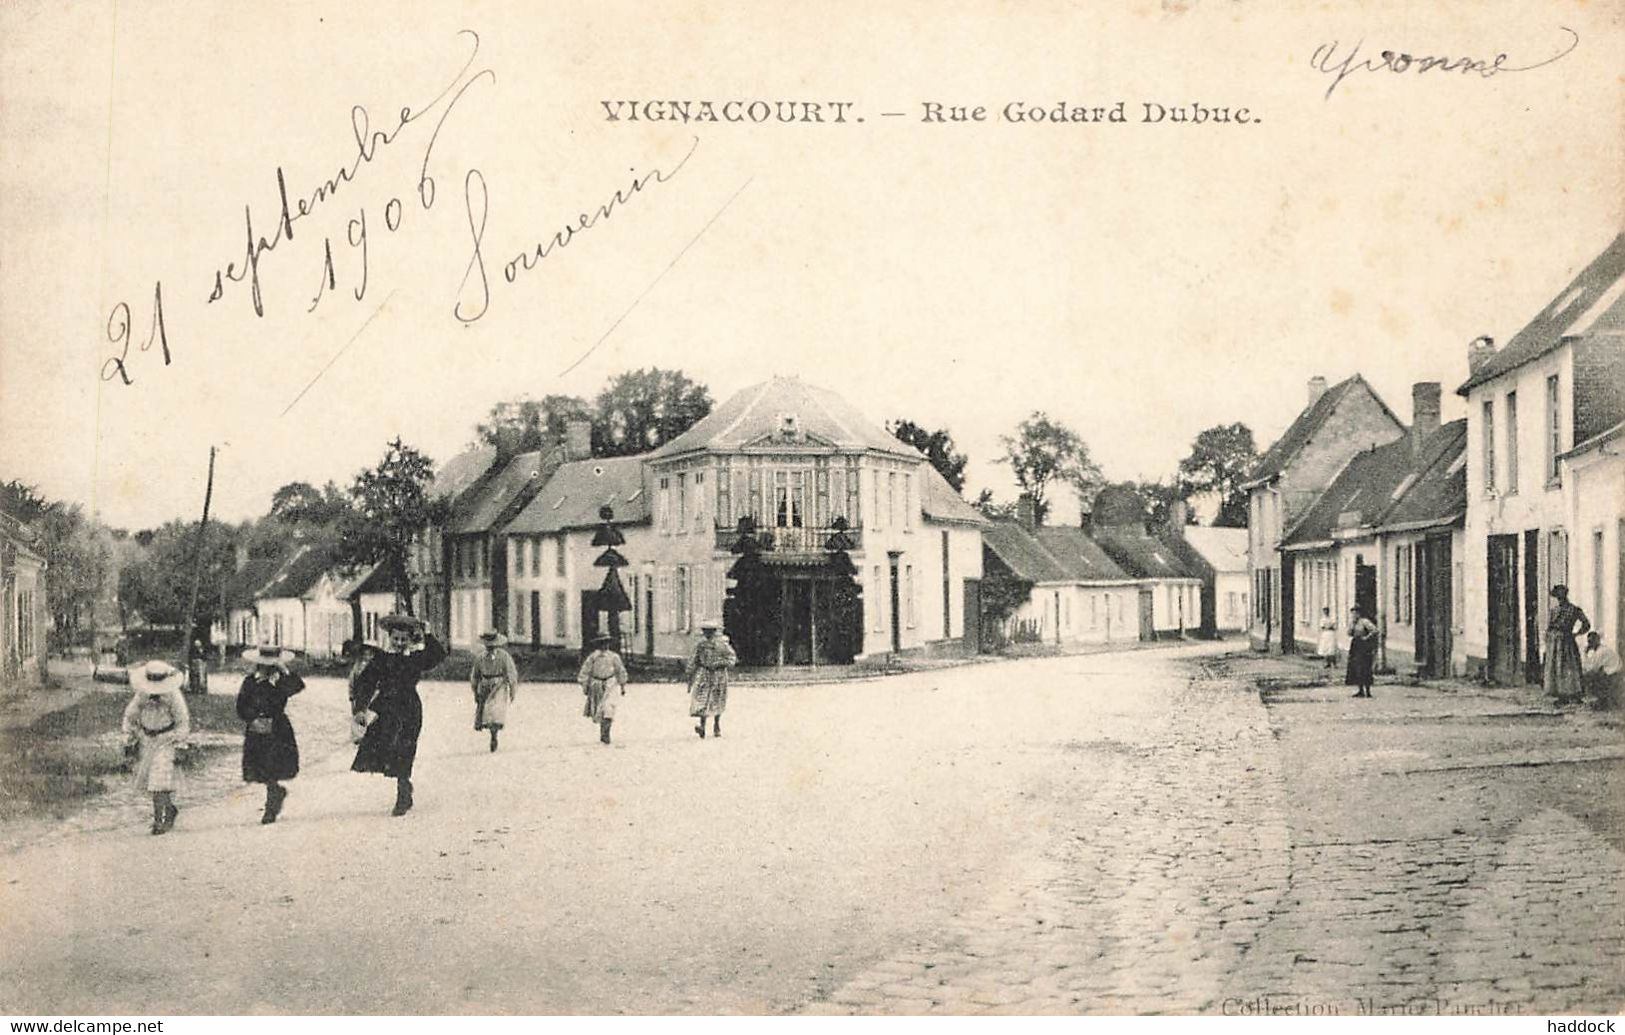 VIGNACOURT. — Rue Godard Dubuc.
Yvonne
21 septembre
1906
Souvenir
Collection
delcampe.net
haddock